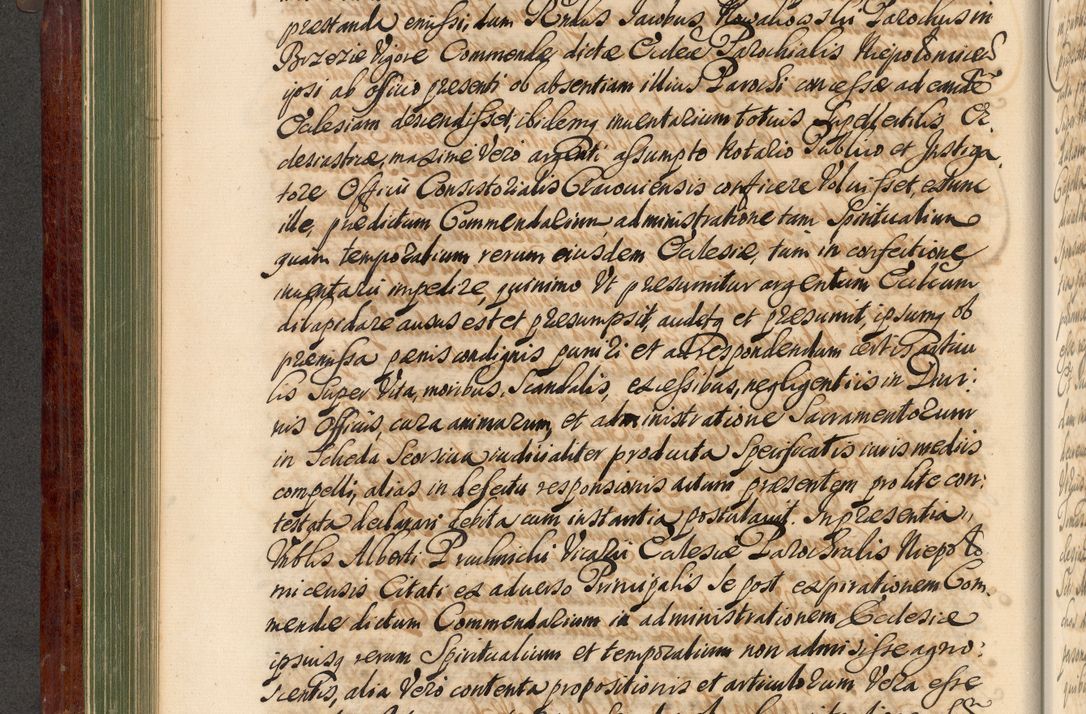 præstanda emissi, dum Rndus Jacobus Kowalkowski Parochus in
Brzezie vigore Commendæ dictæ Ecclæ Parochialis Niepołomicen
ipsi ab officio præsenti ob absentiam illius Parochi concessæ ad eandē
Ecclesiam descendisset, ibidemq inventarium totius supellectilis Ec
clesiasticæ, maxime vero argenti assumpto Notario Publico et Instiga
tore Officii Consistorialis Cracoviensis conficere voluisset, extunc
ille, prædictum Commendarium, administratione tam Spiritualium
quam temporalium rerum eiusdem Ecclesiæ, tum in confectione
inventarii impedire, quinimo ut præsumitur argentum Ecclicum
dilapidare ausus est et præsumpsit, audetq et præsumit, ipsumq ob
præmissa pænis condignis puniri et ad respondendum certis articu
lis super vita, moribus, scandalis, excessibus, negligentiis in Divi:
nis Officiis, cura animarum, et administratione Sacramentorum
in Scheda seorsiva iudicialiter producta specificatis iuris mediis
compelli, alias in defectu responsionis actum præsentem pro lite con:
testata declarari debita cum instantia postulavit. In præsentia
Nrblis Alberti Pruchnicki Vicarii Ecclesiæ Parochialis Niepoło
micensis Citati ex adverso Principalis se post expirationem Com
mendæ dictum Commendarium in administrationem Ecclesiæ
ipsiusq rerum Spiritualium et temporalium non admisisse agno:
scentis, alia vero contenta propositionis et articulorum vera esse